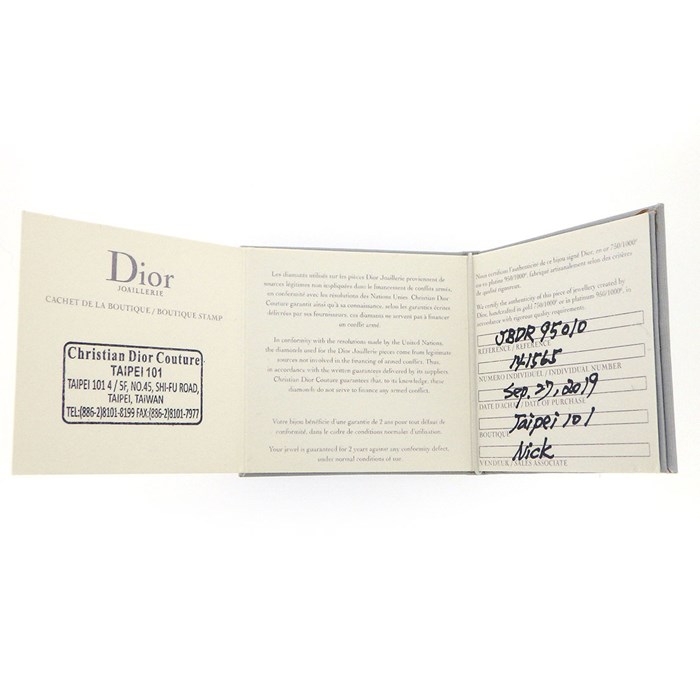 Dior
JOAILLERIE
CACHET DE LA BOUTIQUE / BOUTIQUE STAMP
Christian Dior Couture
TAIPEI 101
TAIPEI 101 4 / 5F, NO.45, SHI-FU ROAD,
TAIPEI, TAIWAN
TEL:(886-2)8101-8199 FAX:(886-2)8101-7977
Les diamants utilisés sur les pièces Dior Joaillerie proviennent de
sources légitimes non impliquées dans le financement de conflits armés,
en conformité avec les résolutions des Nations Unies. Christian Dior
Couture garantit ainsi qu'à sa connaissance, selon les garanties écrites
délivrées par ses fournisseurs, ces diamants ne servent pas à financer
un conflit armé.
In conformity with the resolutions made by the United Nations,
the diamonds used for the Dior Joaillerie pieces come from legitimate
sources not involved in the financing of armed conflict. Thus,
in accordance with the written guarantees delivered by its suppliers
Christian Dior Couture guarantees that, to its knowledge, these
diamonds do not serve to finance any armed conflict.
Votre bijou bénéficie d'une garantie de 2 ans pour tout défaut de
conformité, dans le cadre de conditions normales d'utilisation.
Your jewel is guaranteed for 2 years against any conformity defect,
under normal conditions of use.
Nous certifions l'authenticité de ce bijou signé Dior, en or 750/1000e
ou en platine 950/1000e, fabriqué artisanalement selon des critères
de qualité rigoureux.
We certify the authenticity of this piece of jewellery created by
Dior, handcrafted in gold 750/1000e or in platinum 950/1000e, in
accordance with rigorous quality requirements.
JBDR95010
REFERENCE / REFERENCE
141565
NUMERO INDIVIDUEL / INDIVIDUAL NUMBER
Sep. 27, 2019
DATE D'ACHAT / DATE OF PURCHASE
Taipei 101
BOUTIQUE
Nick
VENDEUR / SALES ASSOCIATE